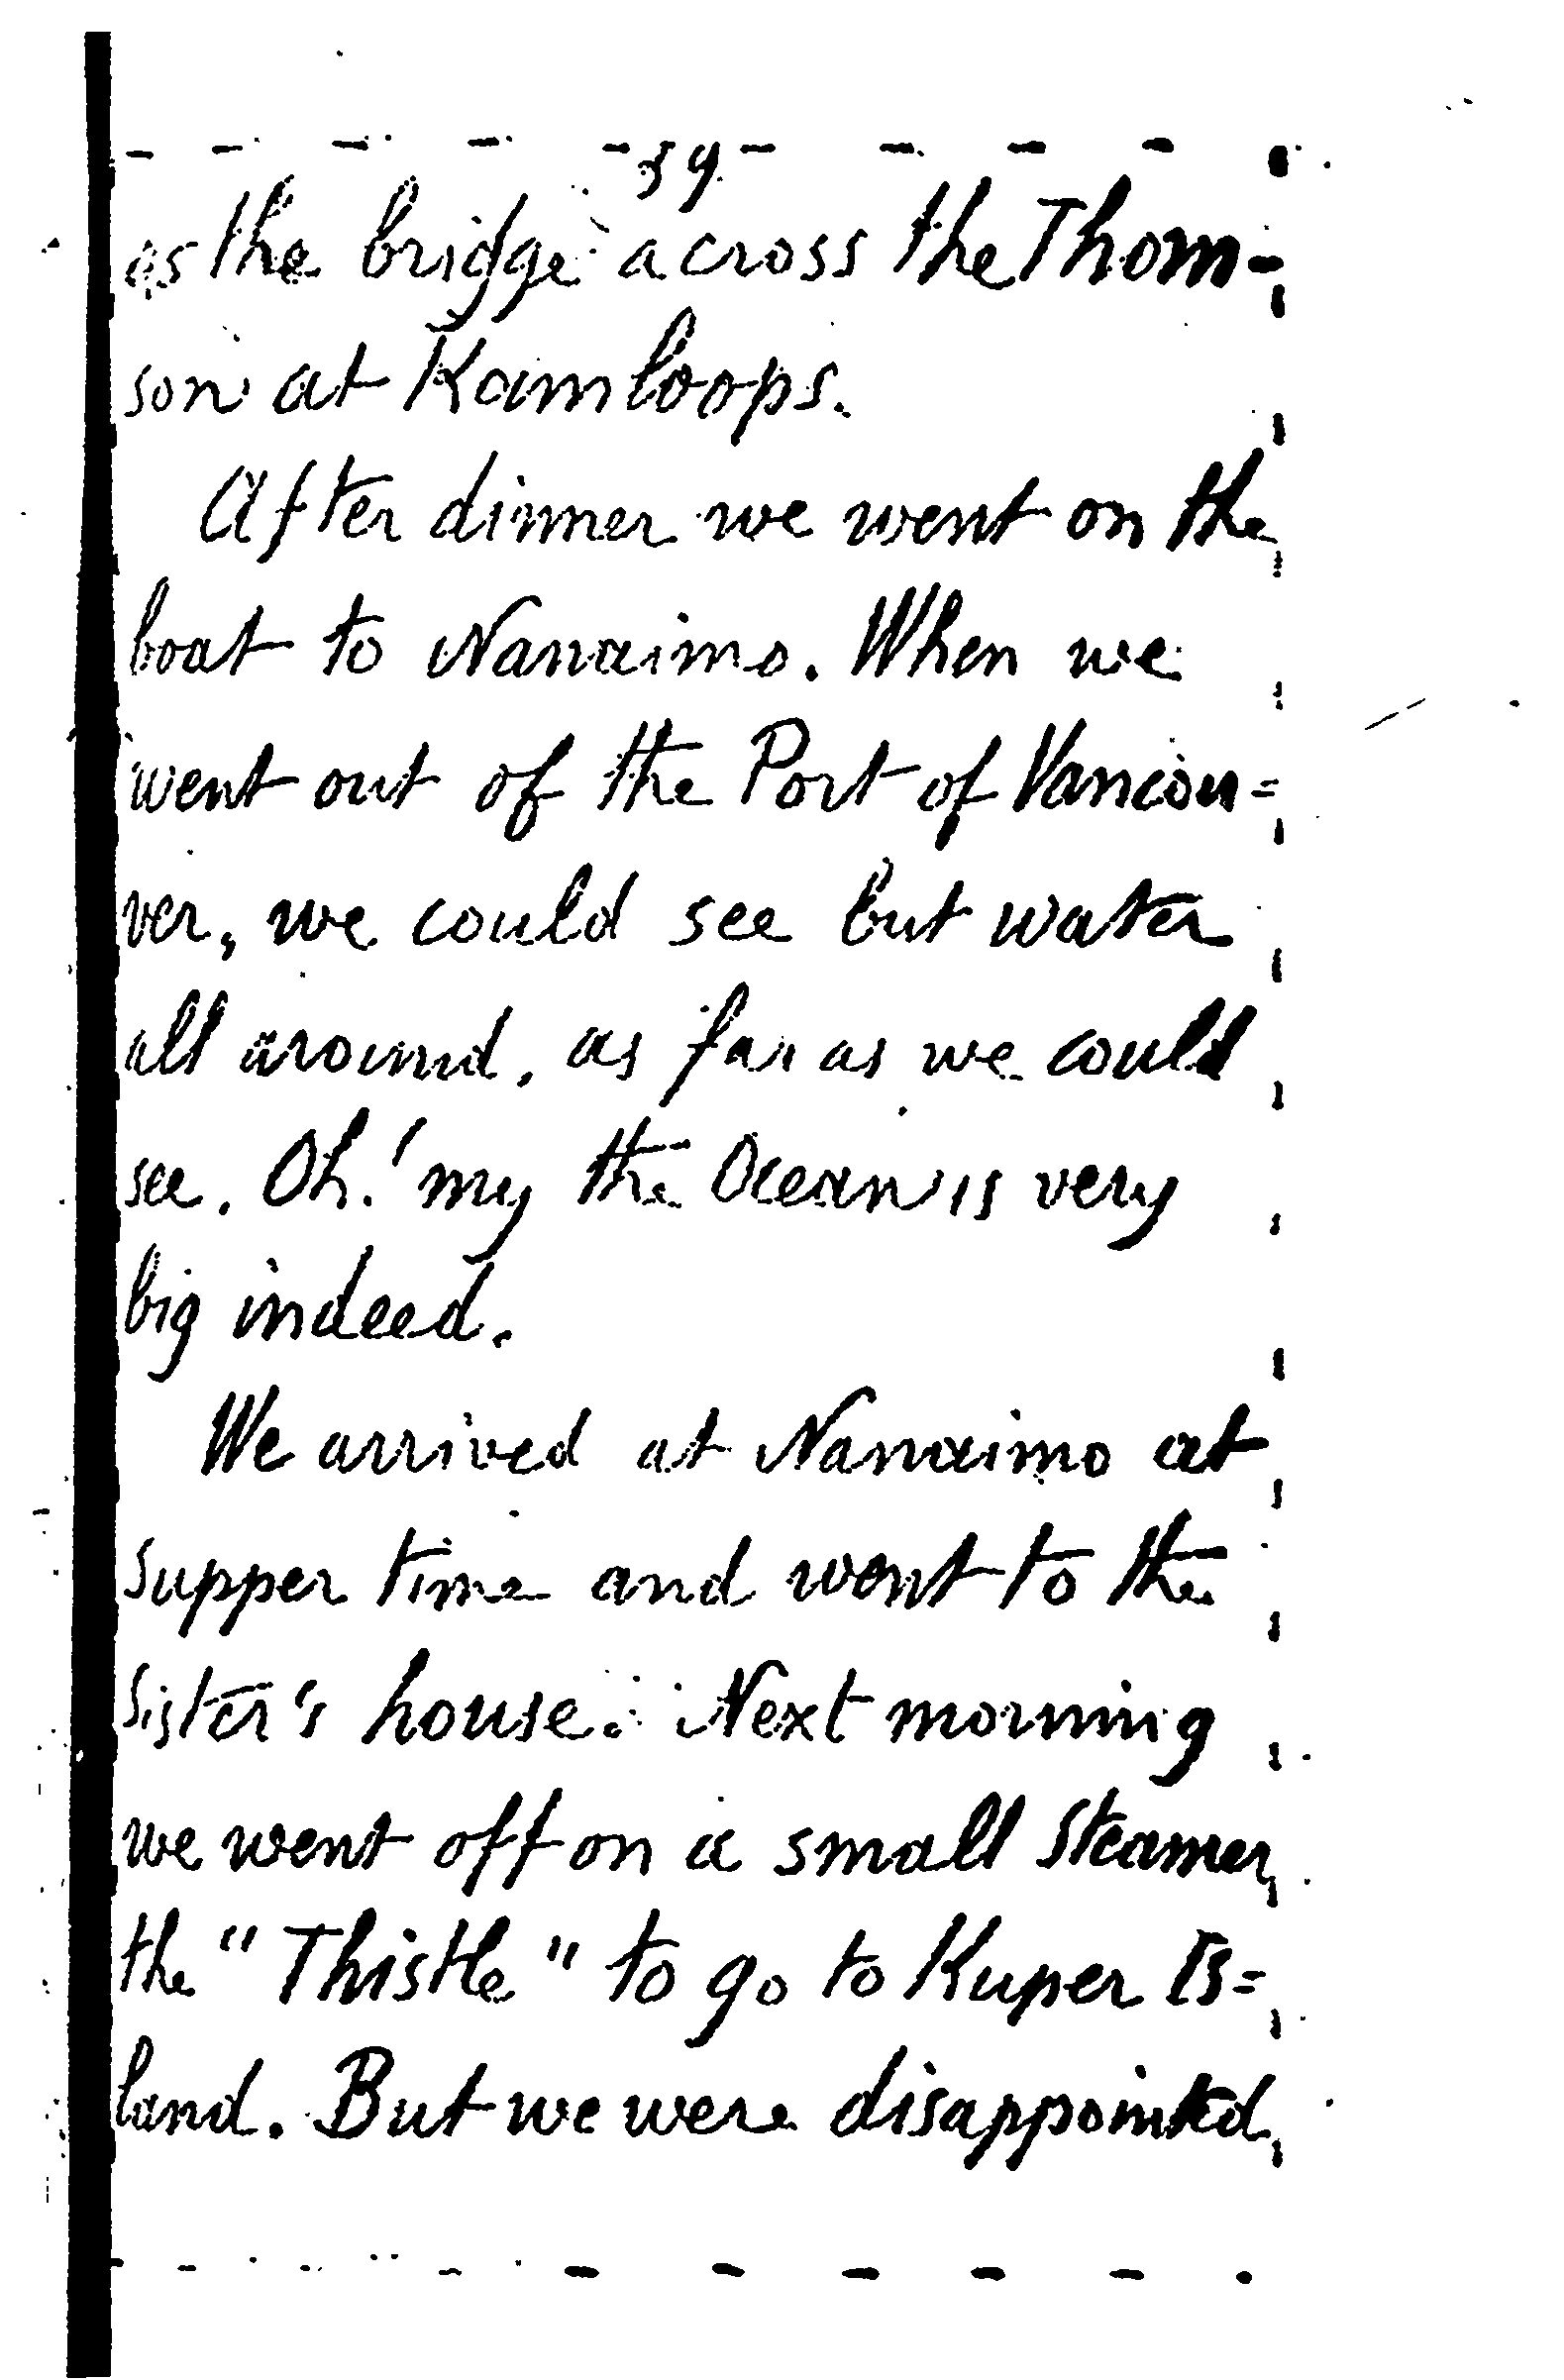 59
as the bridge across the Thom-
son at Kamloops.
After dinner we went on the
boat to Nanaimo. When we
went out of the Port of Vancou=
ver, we could see but water
all around, as far as we could
see. Oh! my the Ocean is very
big indeed.
We arrived at Nanaimo at
supper time and went to the
Sister's house. Next morning
we went off on a small steamer,
the "Thistle" to go to Kuper Is=
land. But we were disappointed,